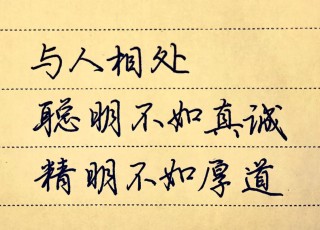 与人相处
聪明不如真诚
精明不如厚道